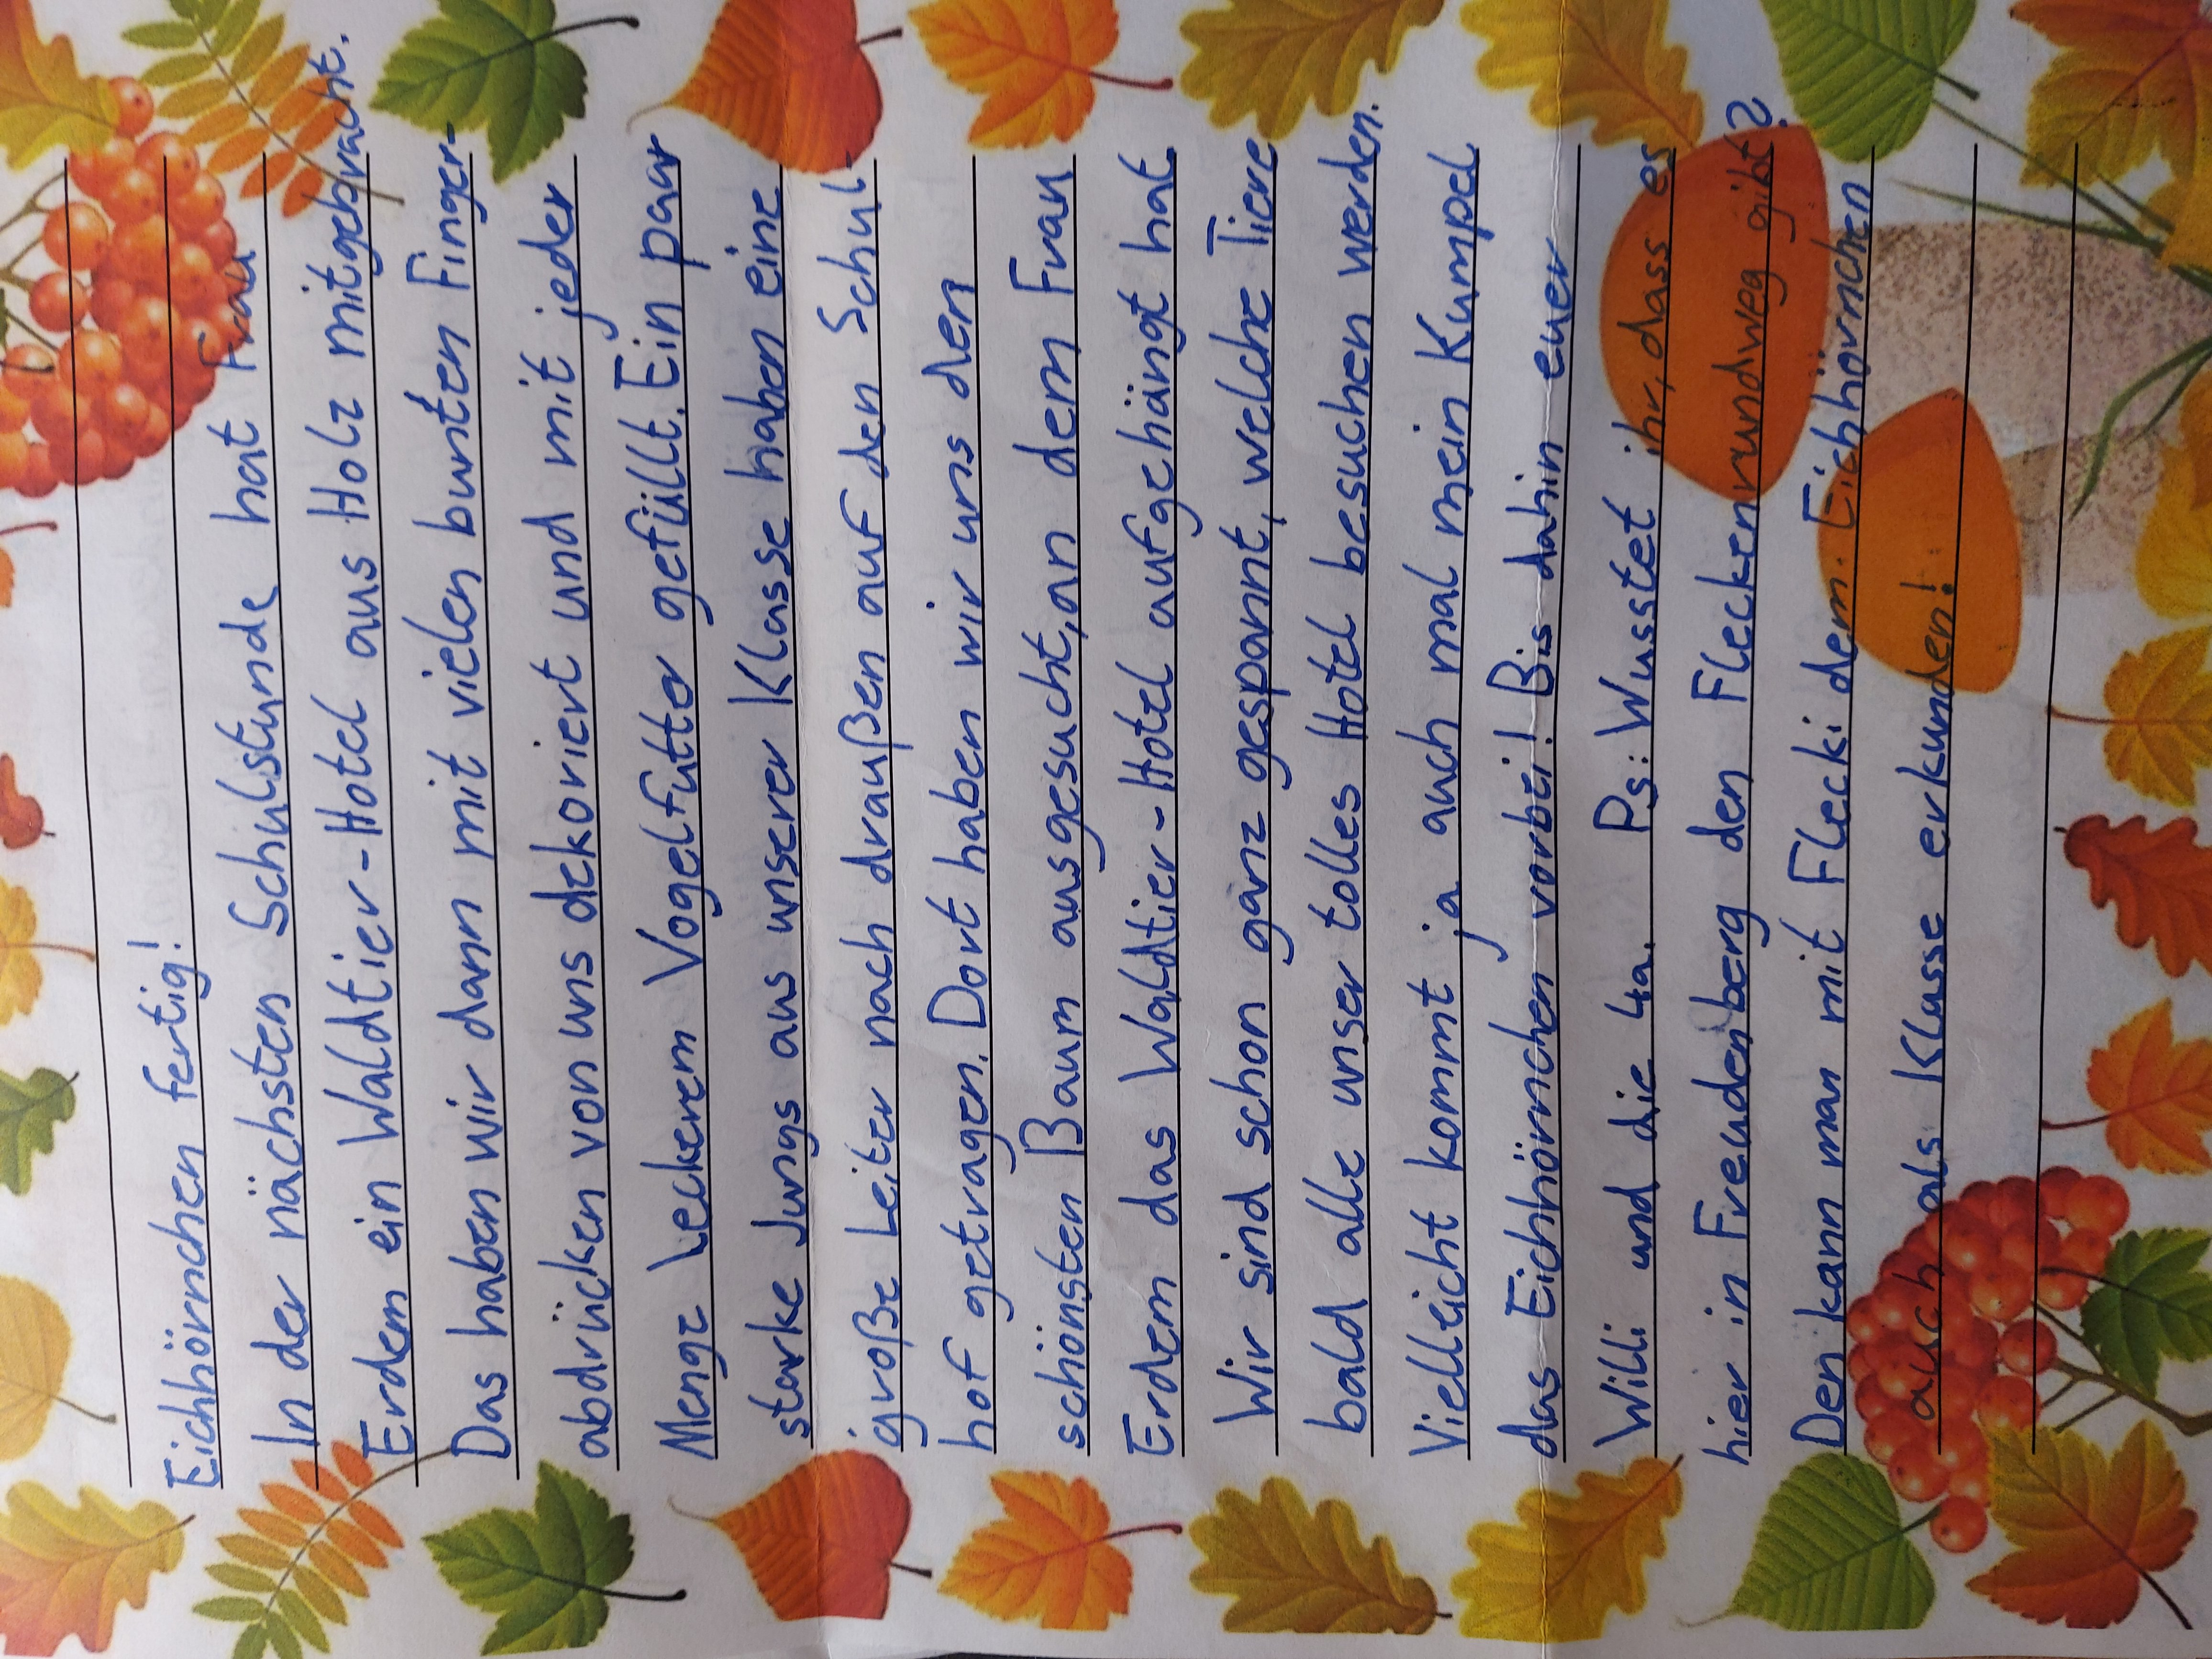 Eichhörnchen fertig!
In der nächsten Schulstunde hat Frau
Erdem ein Waldtier-Hotel aus Holz mitgebracht.
Das haben wir dann mit vielen bunten Finger-
abdrücken von uns dekoriert und mit jeder
Menge leckerem Vogelfutter gefüllt. Ein paar
starke Jungs aus unserer Klasse haben eine
große Leiter nach draußen auf den Schul-
hof getragen. Dort haben wir uns den
schönsten Baum ausgesucht, an dem Frau
Erdem das Waldtier-Hotel aufgehängt hat
Wir sind schon ganz gespannt, welche Tiere
bald alle unser tolles Hotel besuchen werden.
Vielleicht kommt ja auch mal mein Kumpel
das Eichhörnchen vorbei! Bis dahin euer
Willi und die 4a. Ps: Wusstet ihr, dass es
hier in Freudenberg den Fleckenrundweg gibt?
Den kann man mit Flecki dem Eichhörnchen
auch als Klasse erkunden!